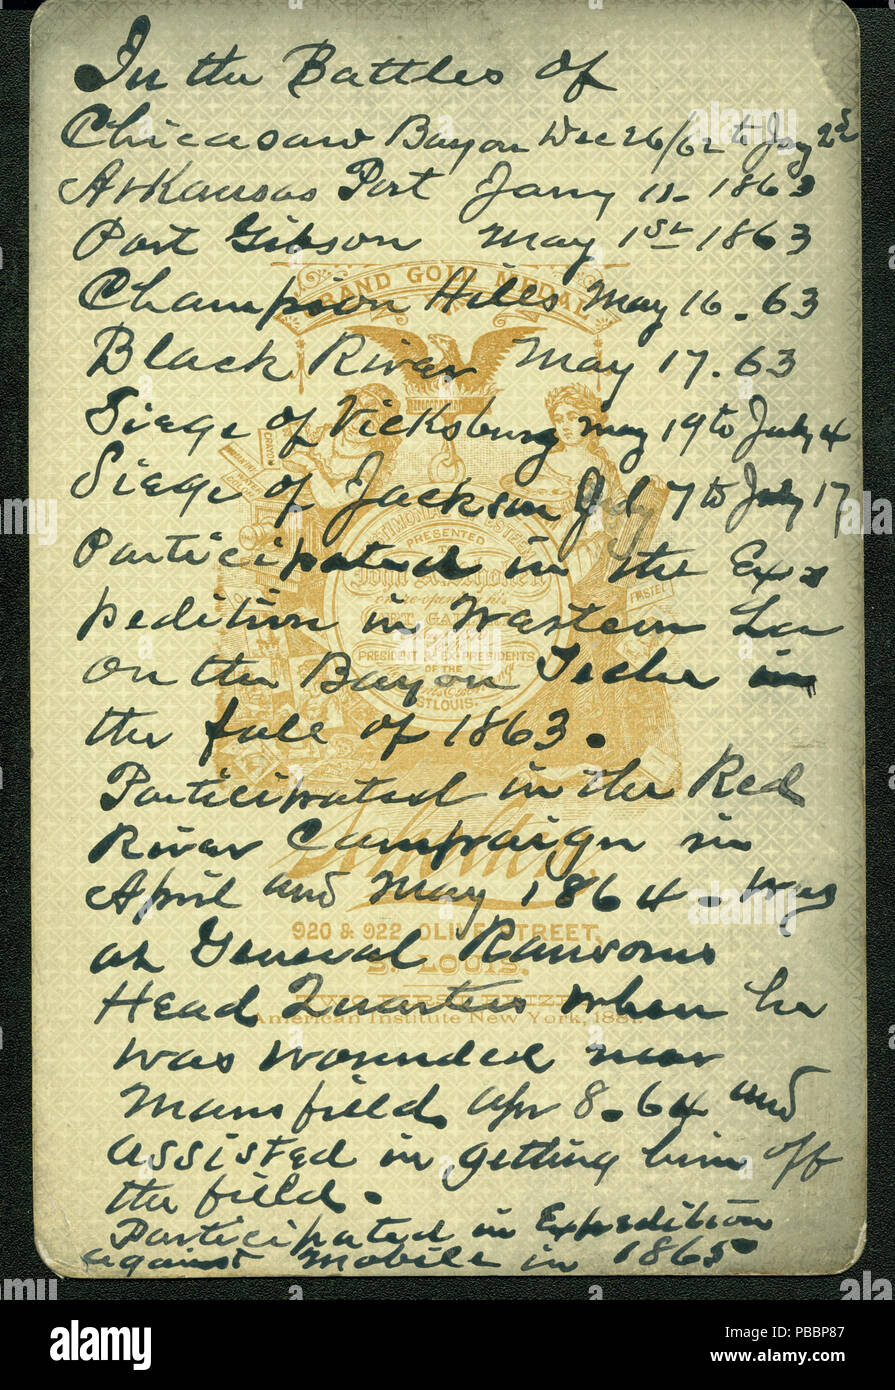 In the Battles of
Chicasaw Bayou Dec 26/62 to Jay 2d
Arkansas Post Jany 11. 1863
Port Gibson May 1st 1863
Champion Hills May 16. 63
Black River May 17. 63
Siege of Vicksburg May 19 to July 4
Siege of Jackson July 7 to July 17
Participated in the Ex-
pedition in Western La
on the Bayou Teche in
the fall of 1863.
Participated in the Red
River Campaign in
April and May 1864. Was
at General Ransoms
Head Quarters when he
was wounded near
Mansfield Apr 8. 64 and
assisted in getting him off
the field.
Participated in Expedition
against Mobile in 1865
GRAND GOLD MEDAL
CRAYON
PASTEL
PRESENTED
PRESIDENT & EX-PRESIDENTS
OF THE
ST LOUIS.
920 & 922 OLIVE STREET,
ST. LOUIS.
American Institute New York, 1881.
alamy
alamy stock photo
PBBP87
www.alamy.com